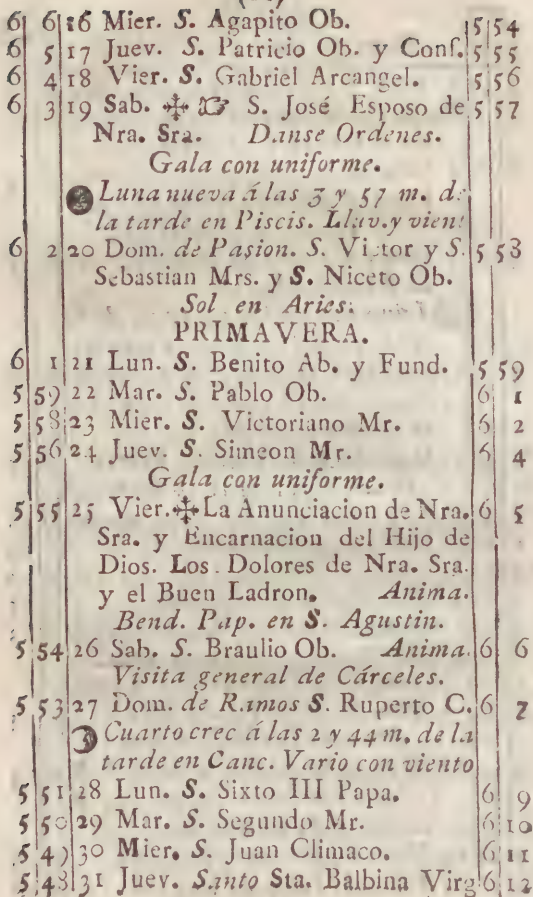 6 6 16 Mier. S. Agapito Ob. 5 54
6 5 17 Juev. S. Patricio Ob. y Conf. 5 55
6 4 18 Vier. S. Gabriel Arcangel. 5 56
6 3 19 Sab. ✠ ☞ S. José Esposo de 5 57
Nra. Sra. Danse Ordenes.
Gala con uniforme.
Luna nueva á las 3 y 57 m. de
la tarde en Piscis. Lluv. y vient
6 2 20 Dom. de Pasion. S. Victor y S. 5 58
Sebastian Mrs. y S. Niceto Ob.
Sol en Aries.
PRIMAVERA.
6 1 21 Lun. S. Benito Ab. y Fund. 5 59
5 59 22 Mar. S. Pablo Ob. 6 1
5 58 23 Mier. S. Victoriano Mr. 6 2
5 56 24 Juev. S. Simeon Mr. 6 4
Gala con uniforme.
5 55 25 Vier. ✠ La Anunciacion de Nra. 6 5
Sra. y Encarnacion del Hijo de
Dios. Los Dolores de Nra. Sra.
y el Buen Ladron. Anima.
Bend. Pap. en S. Agustin.
5 54 26 Sab. S. Braulio Ob. Anima. 6 6
Visita general de Cárceles.
5 53 27 Dom. de Ramos S. Ruperto C. 6 7
Cuarto crec á las 2 y 44 m. de la
tarde en Canc. Vario con viento
5 51 28 Lun. S. Sixto III Papa. 6 9
5 50 29 Mar. S. Segundo Mr. 6 10
5 49 30 Mier. S. Juan Climaco. 6 11
5 48 31 Juev. Santo Sta. Balbina Virg 6 12